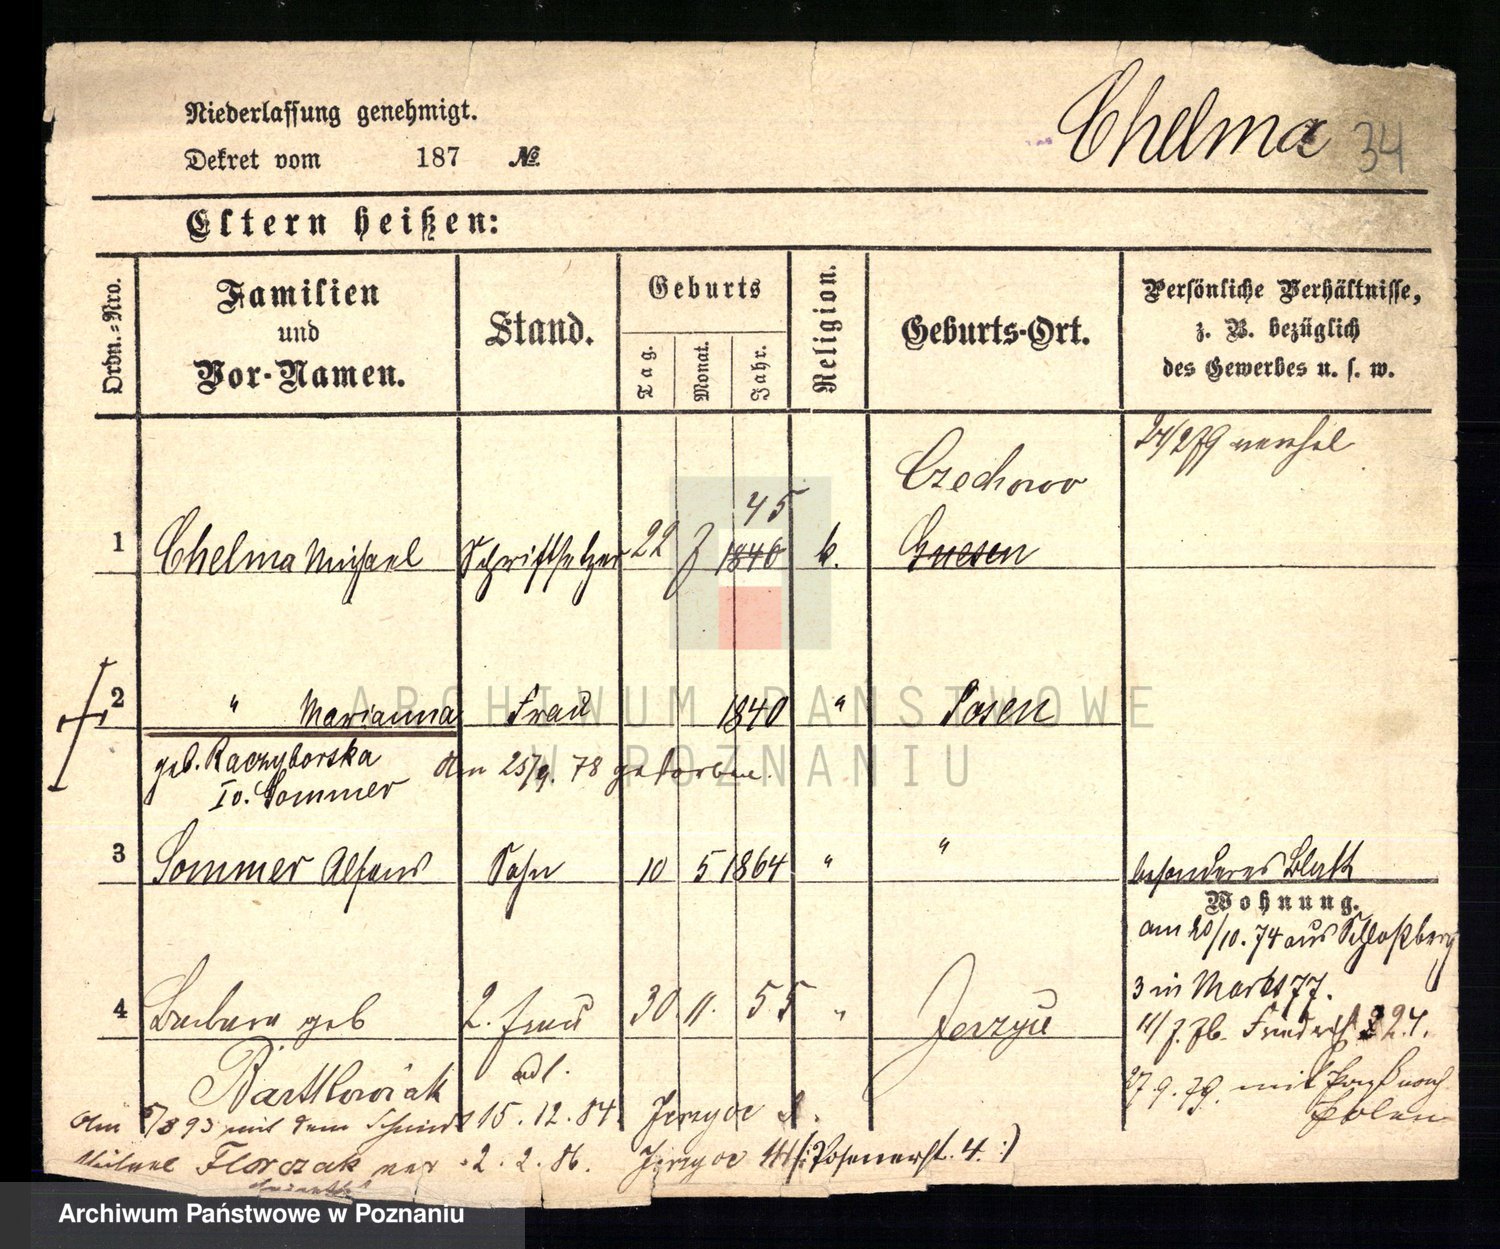 Niederlassung genehmigt.
Chelma 34
Dekret vom 187 №
Eltern heißen:
Ordn.-Nro.
Familien
und
Vor-Namen.
Stand.
Geburts
Tag.
Monat.
Jahr.
Religion.
Geburts-Ort.
Persönliche Verhältnisse,
z. B. bezüglich
des Gewerbes u. s. w.
Czechowo
45
1 Chelma Michael Schriftsetzer 22 1840 k. Gnesen
2 " Marianna Frau 1840 " Posen
geb. Raczyborska den 25/9. 78 gestorben.
Iv. Sommer
3 Sommer Alfons Sohn 10 5 1864 " " besonderes Blatt
Wohnung.
am 20/10. 74 aus Schloßberg
3 in Markt 77.
4 Barbara geb 2. Frau 30. 11. 55 "
24.
Bartkowiak
27.9.79. mit
15.12.84
Am mit dem
Florczak 2.2.86. Posenerst. 4.
ARCHIWUM PAŃSTWOWE
W POZNANIU
Archiwum Państwowe w Poznaniu